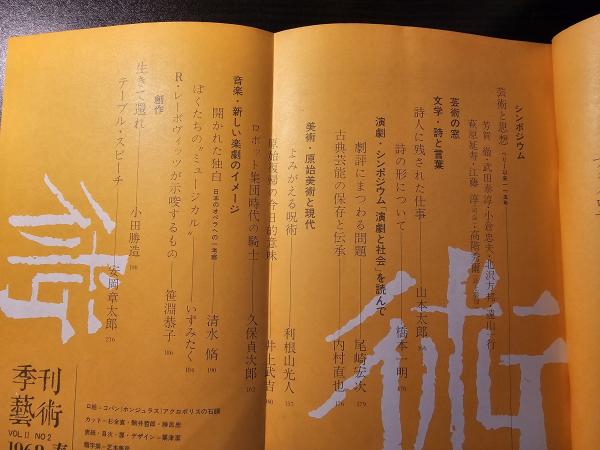 シンポジウム
芸術と思想
芳賀 徹・武田泰淳・小倉忠夫・北沢方邦・遠山一行
萩原延寿・江藤 淳・高階秀爾
芸術の窓
文学・詩と言葉
詩人に残された仕事 山本太郎
詩の形について 橋本一明 170
演劇・シンポジウム「演劇と社会」を読んで
劇評にまつわる問題 尾崎宏次 179
古典芸能の保存と伝承 内村直也 176
美術・原始美術と現代
よみがえる呪術 利根山光人 157
原始復帰の今日的意味 井上武吉 160
ロボット集団時代の騎士 久保貞次郎 162
音楽・新しい楽劇のイメージ
開かれた独白 日本のオペラへの一考察 清水 脩 190
ぼくたちの“ミュージカル” いずみたく 184
R・レーボヴィッツが示唆するもの 笹淵恭子 186
創作
生きて還れ 小田勝造 198
テーブル・スピーチ 安岡章太郎 216
術
術
季刊
藝術
VOL II NO 2
口絵―コパン(ホンジュラス)アクロポリスの石額
カット―杉全直・駒井哲郎・
表紙・目次・扉・デザイン―粟津潔